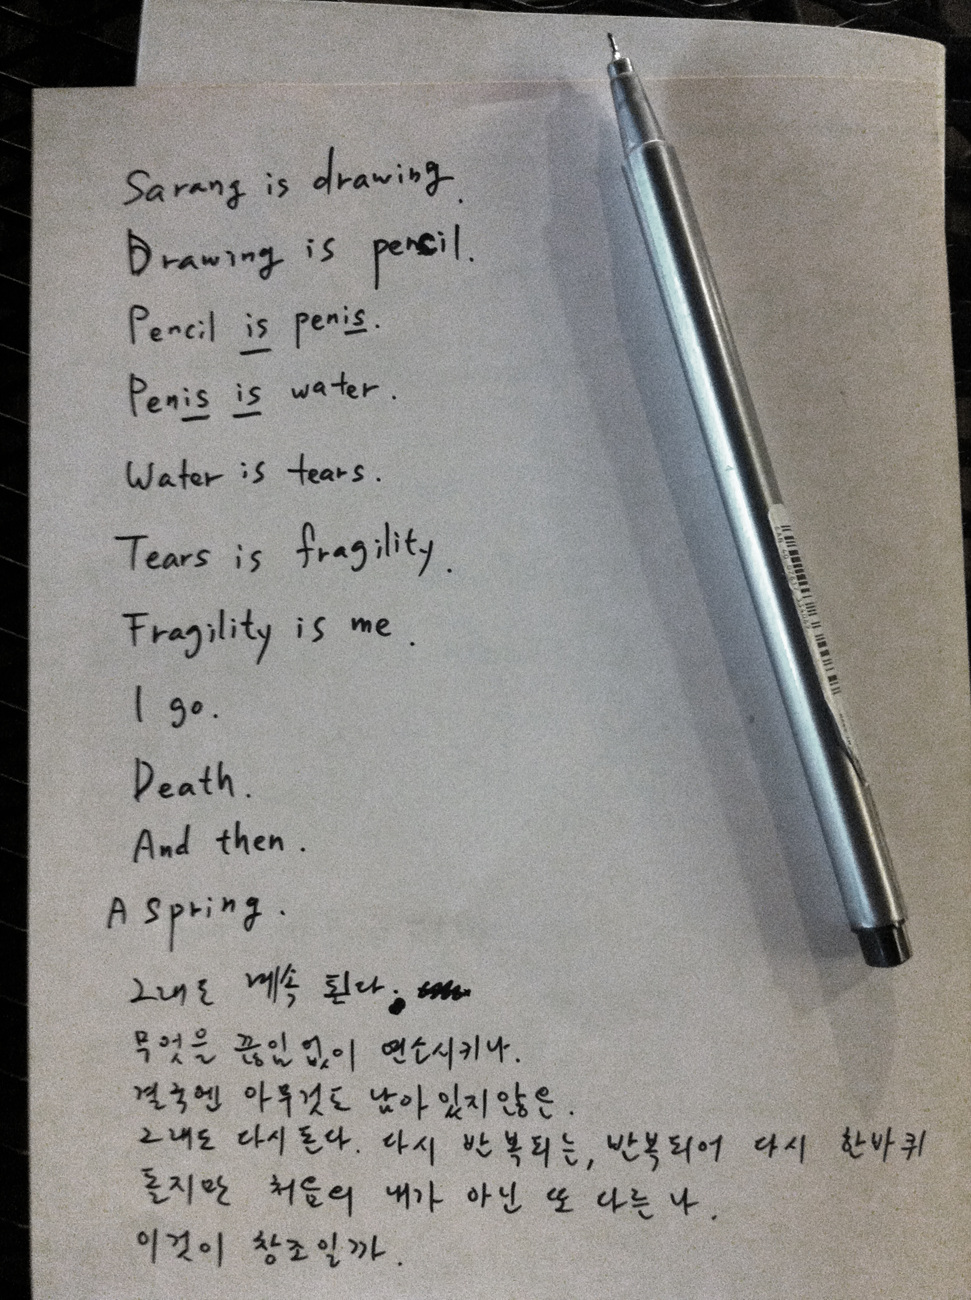 Sarang is drawing.
Drawing is pencil.
Pencil is penis.
Penis is water.
Water is tears.
Tears is fragility.
Fragility is me.
I go.
Death.
And then.
A spring.
그래도 계속 된다.
무엇을 끊임없이 연소시키나.
결국엔 아무것도 남아있지않은.
그래도 다시 돈다. 다시 반복되는, 반복되어 다시 한바퀴
돌지만 처음의 내가 아닌 또 다른 나.
이것이 창조일까.